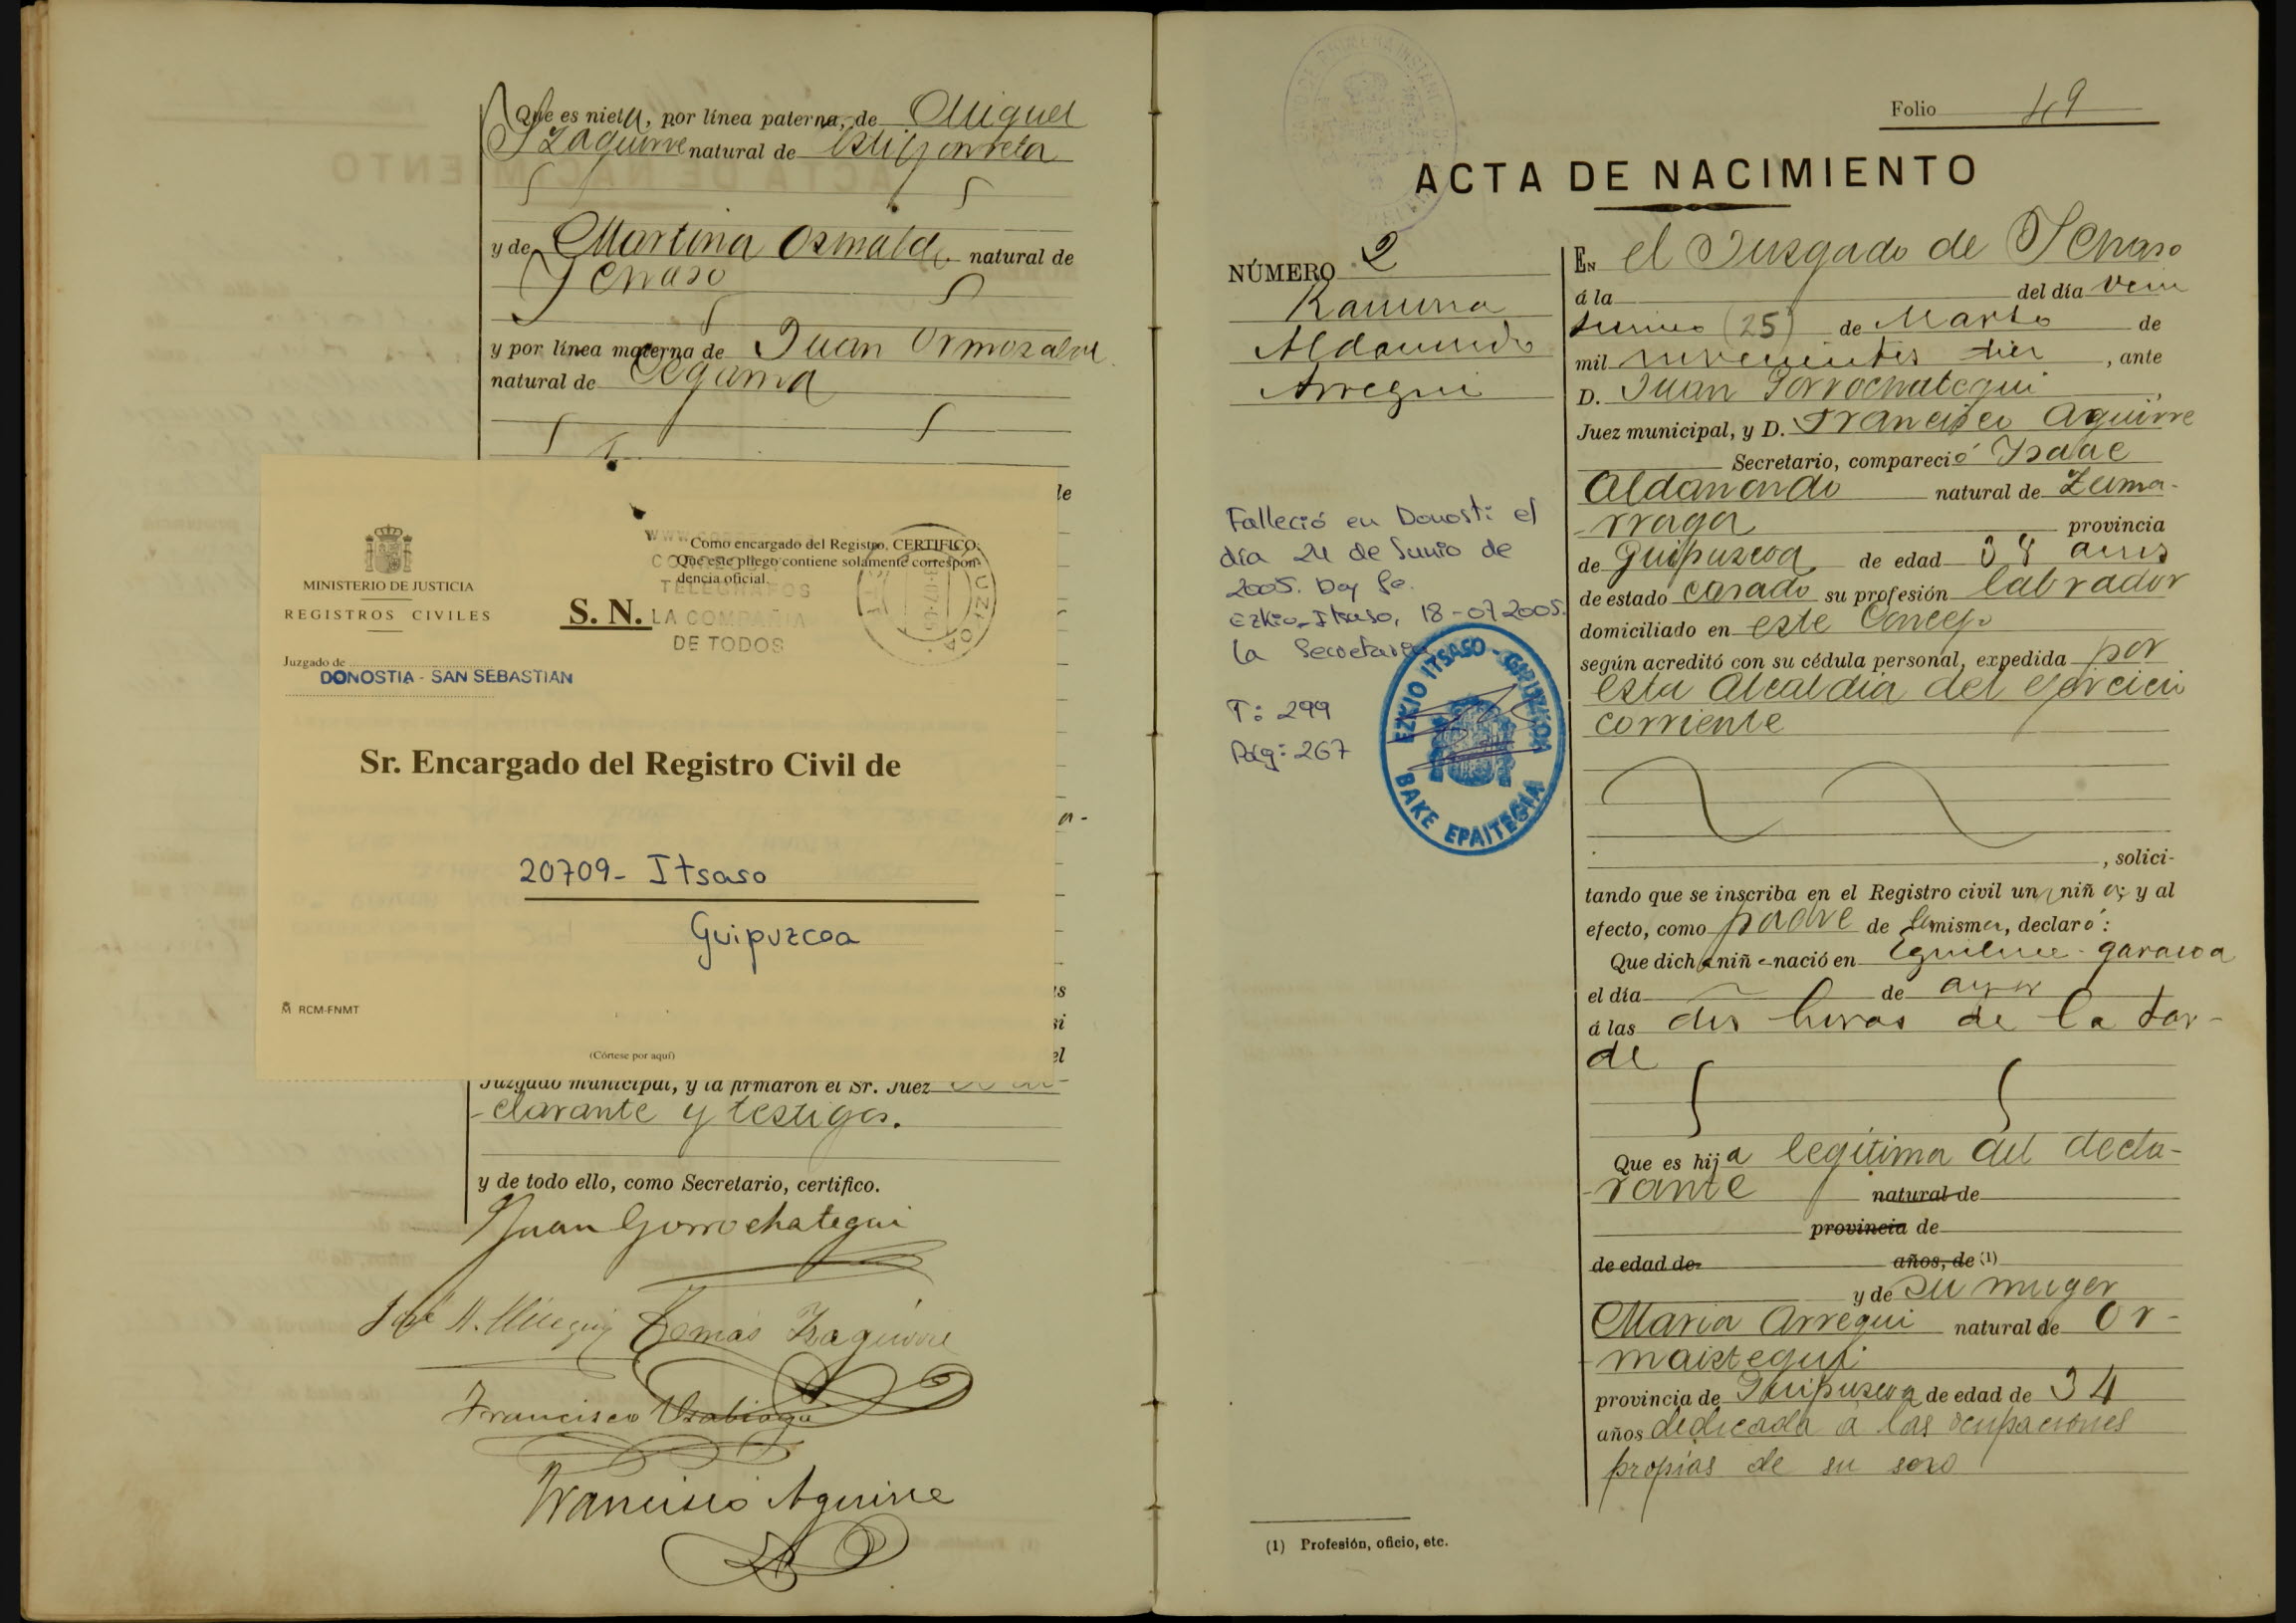 Que es nieta, por línea paterna, de Miguel
Yzaguirre natural de Astigarreta
y de Martina Osinalde natural de
Ychaso
y por línea materna de Juan Ormazabal
natural de Cegama
le
MINISTERIO DE JUSTICIA
REGISTROS CIVILES
Juzgado de
DONOSTIA - SAN SEBASTIAN
S. N.
Como encargado del Registro, CERTIFICO:
Que este pliego contiene solamente correspon-
dencia oficial.
TELEGRAFOS
LA COMPAÑIA
DE TODOS
Sr. Encargado del Registro Civil de
20709- Itsaso
Guipuzcoa
RCM-FNMT
(Córtese por aquí)
a-
us
si
el
Juzgado municipal, y la firmaron el Sr. Juez
-clarante y testigos.
y de todo ello, como Secretario, certifico.
Juan Gorrochategui
Tomás Yzaguirre
Francisco
Francisco Aguirre
Folio 49
ACTA DE NACIMIENTO
NÚMERO 2
Ramona
Aldanondo
Arregui
Falleció en Donosti el
día 24 de Junio de
2005. Doy fe.
Ezkio-Itsaso, 18-07-2005.
La Secretaria
T: 299
Pág: 267
EZKIO ITSASO - GIPUZKOA
BAKE EPAITEGIA
EN el Jusgado de Ychaso
á la del día vein
ticinco (25) de Marzo de
mil novecientos diez, ante
D. Juan Gorrochategui
Juez municipal, y D. Francisco Aguirre
Secretario, compareció Ysaac
Aldanondo natural de Zuma-
rraga provincia
de Guipuzcoa de edad 38 años
de estado casado su profesión labrador
domiciliado en este Concejo
según acreditó con su cédula personal, expedida por
esta Alcaldía del ejercicio
corriente
, solici-
tando que se inscriba en el Registro civil una niña; y al
efecto, como padre de la misma, declaró:
Que dicha niña nació en garaicoa
el día de ayer
á las dos horas de la tar-
de
Que es hija legítima del decla-
rante natural de
provincia de
de edad de años, de (1)
y de su muger
Maria Arregui natural de Or-
maiztegui
provincia de Guipuzcoa de edad de 34
años dedicada á las ocupaciones
propias de su sexo
(1) Profesión, oficio, etc.